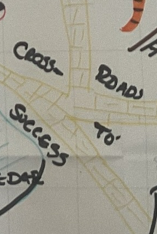 CROSS-
ROADS
TO
SUCCESS